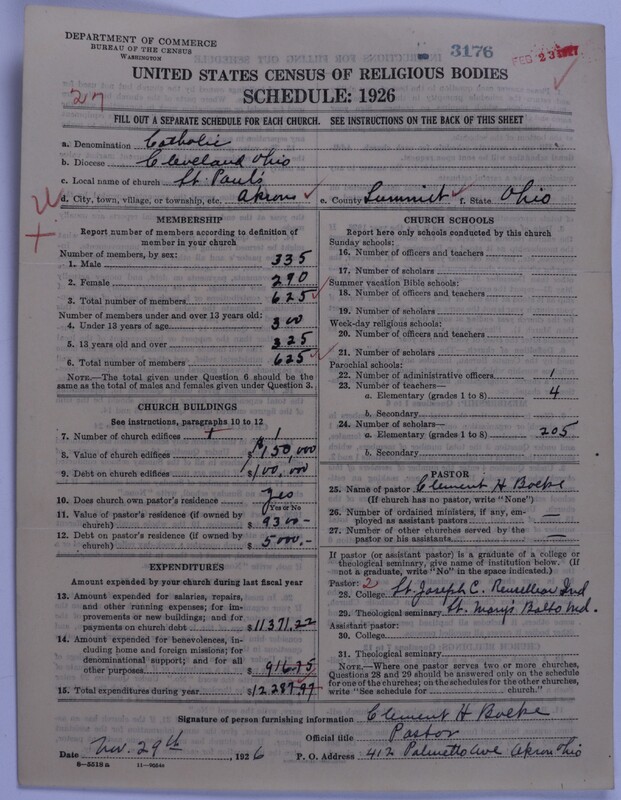 DEPARTMENT OF COMMERCE
BUREAU OF THE CENSUS
WASHINGTON
3176
FEB 23 1927
UNITED STATES CENSUS OF RELIGIOUS BODIES
27
SCHEDULE: 1926
FILL OUT A SEPARATE SCHEDULE FOR EACH CHURCH. SEE INSTRUCTIONS ON THE BACK OF THIS SHEET
a. Denomination Catholic
b. Diocese Cleveland Ohio
c. Local name of church St. Paul's
d. City, town, village, or township, etc. Akron e. County Summit f. State Ohio
MEMBERSHIP
Report number of members according to definition of
member in your church
Number of members, by sex:
1. Male 335
2. Female 290
3. Total number of members 625
Number of members under and over 13 years old:
4. Under 13 years of age 300
5. 13 years old and over 325
6. Total number of members 625
NOTE.—The total given under Question 6 should be the
same as the total of males and females given under Question 3.
CHURCH BUILDINGS
See instructions, paragraphs 10 to 12
7. Number of church edifices 1
8. Value of church edifices $150,000
9. Debt on church edifices $100,000
10. Does church own pastor's residence Yes
Yes or No
11. Value of pastor's residence (if owned by
church) $9300-
12. Debt on pastor's residence (if owned by
church) $5000.-
EXPENDITURES
Amount expended by your church during last fiscal year
13. Amount expended for salaries, repairs,
and other running expenses; for im-
provements or new buildings; and for
payments on church debt $11371.22
14. Amount expended for benevolences, in-
cluding home and foreign missions; for
denominational support; and for all
other purposes $916.75
15. Total expenditures during year $12287.97
CHURCH SCHOOLS
Report here only schools conducted by this church
Sunday schools:
16. Number of officers and teachers
17. Number of scholars
Summer vacation Bible schools:
18. Number of officers and teachers
19. Number of scholars
Week-day religious schools:
20. Number of officers and teachers
21. Number of scholars
Parochial schools:
22. Number of administrative officers 1
23. Number of teachers—
a. Elementary (grades 1 to 8) 4
b. Secondary
24. Number of scholars—
a. Elementary (grades 1 to 8) 205
b. Secondary
PASTOR
25. Name of pastor Clement H Boeke
(If church has no pastor, write "None")
26. Number of ordained ministers, if any, em-
ployed as assistant pastors —
27. Number of other churches served by the
pastor or his assistants —
If pastor (or assistant pastor) is a graduate of a college or
theological seminary, give name of institution below. (If
not a graduate, write "No" in the space indicated.)
Pastor: 2
28. College St. Joseph C. Rensellear Ind
29. Theological seminary St. Marys Balto Md.
Assistant pastor:
30. College
31. Theological seminary
NOTE.—Where one pastor serves two or more churches,
Questions 28 and 29 should be answered only on the schedule
for one of the churches; on the schedules for the other churches,
write "See schedule for church."
Signature of person furnishing information Clement H Boeke
Official title Pastor
Date Nov. 29th, 1926 P. O. Address 412 Palmetto Ave Akron Ohio
6—5518 a